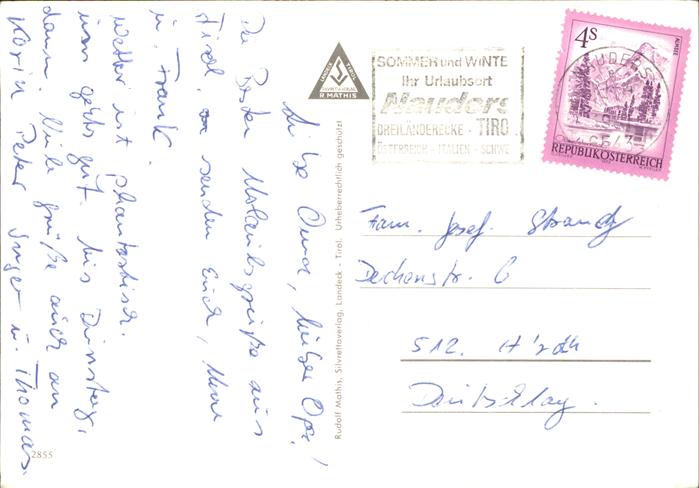 Liebe Oma, lieber Opa!
Die Besten Urlaubsgrüße aus
Tirol, senden Euch,
u. Frank.
Wetter ist phantastisch.
uns gehts gut. Bis Dienstag,
dann. Viele grüße auch an
Karin Peter u. Thomas.
2855
LANDECK TIROL
SILVRETTA-VERLAG
R MATHIS
Rudolf Mathis, Silvrettaverlag, Landeck - Tirol. Urheberrechtlich geschützt
SOMMER und WINTE
Ihr Urlaubsort
Nauders
DREILÄNDERECKE - TIRO
ÖSTERREICH - ITALIEN - SCHWE
4S
AUSEE
NAUDERS
6543
REPUBLIK ÖSTERREICH
Fam. Josef
Dechenstr. 6
512. Hürth